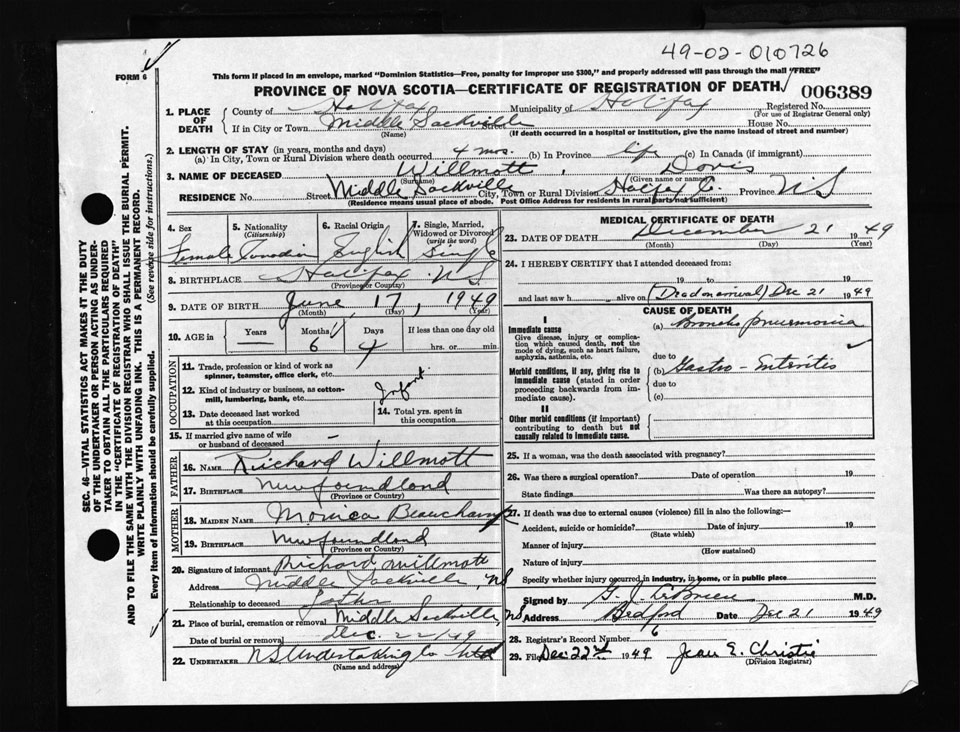 49-02-010726
FORM 6
This form if placed in an envelope, marked "Dominion Statistics—Free, penalty for improper use $300," and properly addressed will pass through the mail "FREE"
PROVINCE OF NOVA SCOTIA—CERTIFICATE OF REGISTRATION OF DEATH
006389
1. PLACE OF DEATH
County of Halifax Municipality of Halifax Registered No.
(For use of Registrar General only)
If in City or Town Middle Sackville Street House No.
(Name) (If death occurred in a hospital or institution, give the name instead of street and number)
2. LENGTH OF STAY (in years, months and days)
(a) In City, Town or Rural Division where death occurred 4 mos. (b) In Province life (c) In Canada (if immigrant)
3. NAME OF DECEASED Willmott, Doris
(Surname) (Given name or names)
RESIDENCE No. Street Middle Sackville City, Town or Rural Division Halifax C. Province NS
(Residence means usual place of abode. Post Office Address for residents in rural parts not sufficient)
4. Sex Female
5. Nationality (Citizenship) Canadian
6. Racial Origin English
7. Single, Married, Widowed or Divorced (write the word) Single
8. BIRTHPLACE Halifax NS
(Province or Country)
9. DATE OF BIRTH June 17, 1949
(Month) (Day) (Year)
10. AGE in Years — Months 6 Days 4 If less than one day old
hrs. or min.
OCCUPATION
11. Trade, profession or kind of work as spinner, teamster, office clerk, etc.
Infant
12. Kind of industry or business, as cotton-mill, lumbering, bank, etc.
13. Date deceased last worked at this occupation
14. Total yrs. spent in this occupation
15. If married give name of wife or husband of deceased —
FATHER
16. NAME Richard Willmott
17. BIRTHPLACE Newfoundland
(Province or Country)
MOTHER
18. MAIDEN NAME Monica Beauchamp
19. BIRTHPLACE Newfoundland
(Province or Country)
20. Signature of informant Richard Willmott
Address Middle Sackville, NS
Relationship to deceased Father
21. Place of burial, cremation or removal Middle Sackville, NS
Date of burial or removal Dec. 22/49
22. UNDERTAKER NS Undertaking Co Ltd
(Name and address)
MEDICAL CERTIFICATE OF DEATH
23. DATE OF DEATH December 21 1949
(Month) (Day) (Year)
24. I HEREBY CERTIFY that I attended deceased from:
19 to 19
and last saw h alive on (Dead on arrival) Dec 21 1949
CAUSE OF DEATH
I
Immediate cause
Give disease, injury or complication which caused death, not the mode of dying, such as heart failure, asphyxia, asthenia, etc.
(a) Broncho pneumonia
due to
Morbid conditions, if any, giving rise to immediate cause (stated in order proceeding backwards from immediate cause).
(b) Gastro-Enteritis
due to
(c)
II
Other morbid conditions (if important) contributing to death but not causally related to immediate cause.
25. If a woman, was the death associated with pregnancy?
26. Was there a surgical operation? Date of operation 19
State findings Was there an autopsy?
27. If death was due to external causes (violence) fill in also the following:—
Accident, suicide or homicide? Date of injury 19
(State which)
Manner of injury
(How sustained)
Nature of injury
Specify whether injury occurred in industry, in home, or in public place
Signed by G. J. M.D.
Address Bedford Date Dec 21 1949
28. Registrar's Record Number 6
29. Filed Dec 22nd 1949 Jean E. Christie
(Division Registrar)
SEC. 46—VITAL STATISTICS ACT MAKES IT THE DUTY
OF THE UNDERTAKER OR PERSON ACTING AS UNDERTAKER
TO OBTAIN ALL THE PARTICULARS REQUIRED
IN THE "CERTIFICATE OF REGISTRATION OF DEATH"
AND TO FILE THE SAME WITH THE DIVISION REGISTRAR WHO SHALL ISSUE THE BURIAL PERMIT.
WRITE PLAINLY WITH UNFADING INK. THIS IS A PERMANENT RECORD.
Every item of information should be carefully supplied. (See reverse side for instructions.)